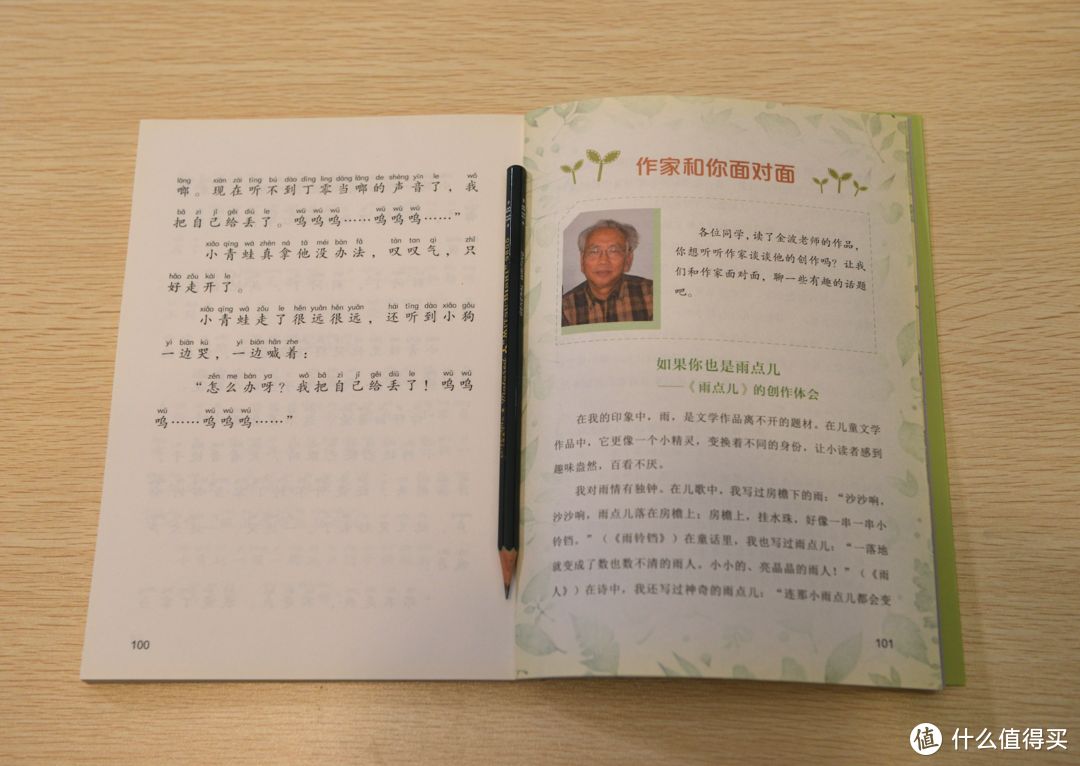 lāng xiàn zài tīng bú dào dīng líng dāng lāng de shēng yīn le wǒ
啷。现在听不到丁零当啷的声音了，我
bǎ zì jǐ gěi diū le wū wū wū wū wū wū
把自己给丢了。呜呜呜……呜呜呜……”
xiǎo qīng wā zhēn ná tā méi bàn fǎ tàn tan qì zhǐ
小青蛙真拿他没办法，叹叹气，只
hǎo zǒu kāi le
好走开了。
xiǎo qīng wā zǒu le hěn yuǎn hěn yuǎn hái tīng dào xiǎo gǒu
小青蛙走了很远很远，还听到小狗
yì biān kū yì biān hǎn zhe
一边哭，一边喊着：
zěn me bàn ya wǒ bǎ zì jǐ gěi diū le wū wū
“怎么办呀？我把自己给丢了！呜呜
wū wū wū wū
呜……呜呜呜……”
100
作家和你面对面
各位同学，读了金波老师的作品，
你想听听作家谈谈他的创作吗？让我
们和作家面对面，聊一些有趣的话题
吧。
如果你也是雨点儿
——《雨点儿》的创作体会
在我的印象中，雨，是文学作品离不开的题材。在儿童文学
作品中，它更像一个小精灵，变换着不同的身份，让小读者感到
趣味盎然，百看不厌。
我对雨情有独钟。在儿歌中，我写过房檐下的雨：“沙沙响，
沙沙响，雨点儿落在房檐上；房檐上，挂水珠，好像一串一串小
铃铛。”（《雨铃铛》）在童话里，我也写过雨点儿：“一落地
就变成了数也数不清的雨人。小小的、亮晶晶的雨人！”（《雨
人》）在诗中，我还写过神奇的雨点儿：“连那小雨点儿都会变
101
值 什么值得买